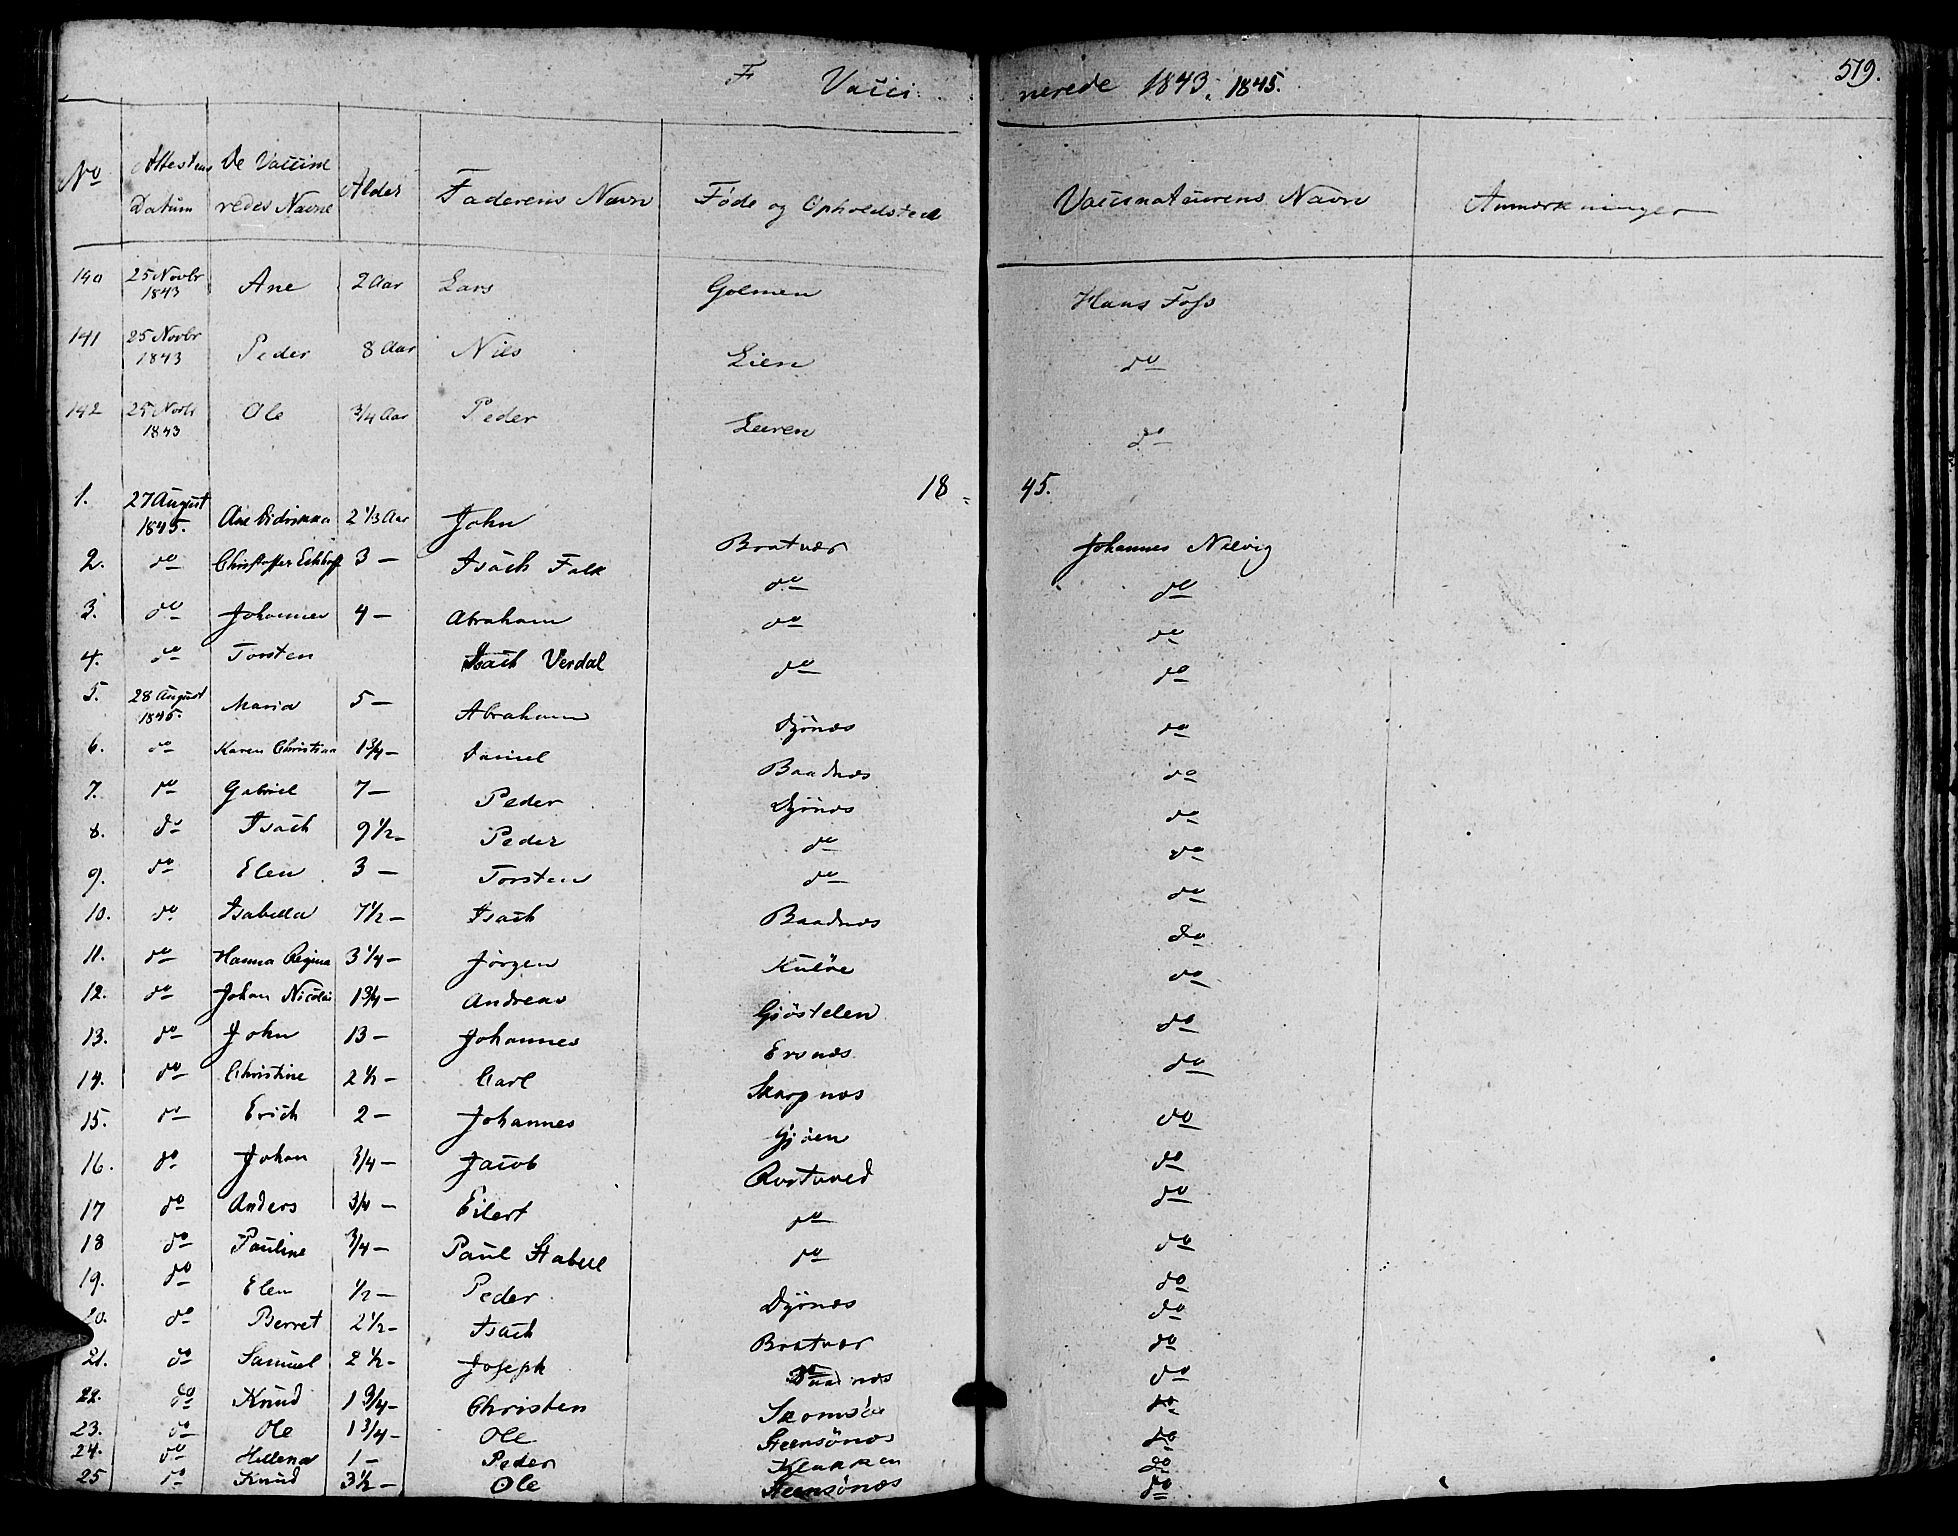 F Vacci nerede 1843. 1845. 519.
No Attestens Datum De Vaccine redes Navne Alder Faderens Navn Føde og Opholdsted Vaccinateurens Navn Anmærkninger
140 25 Novbr 1843 Ane 2 Aar Lars Golmen Hans Foss
141 25 Novbr 1843 Peder 8 Aar Nils Lien do
142 25 Novbr 1843 Ole 3/4 Aar Peder Leeren do
18 45.
1. 27 August 1845. Ane Didrikka 2 1/3 Aar John Bratvær Johannes Nelvig
2. do Christoffer Eckhoff 3 — Isach Falk do do
3. do Johannes 4 — Abraham do do
4. do Torsten Isach Verdal do do
5. 28 August 1845. Maria 5 — Abraham Dyrnæs do
6. do Karen Christina 1 3/4 — Daniel Baadnæs do
7. do Gabriel 7 — Peder Dyrnæs do
8. do Isach 9 1/2 — Peder do do
9. do Elen 3 — Torsten do do
10. do Isabella 7 1/2 — Isach Baadnæs do
11. do Hanna Regina 3 1/4 — Jørgen Kuløe do
12. do Johan Nicolai 1 3/4 — Andreas Gjöstelen do
13. do John 13 — Johannes Ervnæs do
14. do Christine 2 1/2 — Carl Skarpnæs do
15. do Erich 2 — Johannes Gjøen do
16. do Johan 3/4 — Jacob Rostvned do
17 do Anders 3/4 — Eilert do do
18 do Pauline 3/4 — Paul Stabell do do
19. do Elen 1/2 — Peder Dyrnæs do
20. do Berret 2 1/2 — Isach Bratvær do
21. do Samuel 2 1/2 — Joseph do
22. do Knud 1 3/4 — Christen Skomsøe do
23. do Ole 1 3/4 — Ole Steensönæs do
24. do Hellena 1 — Peder Klakken do
25 do Knud 3 1/2 — Ole Steensönæs do